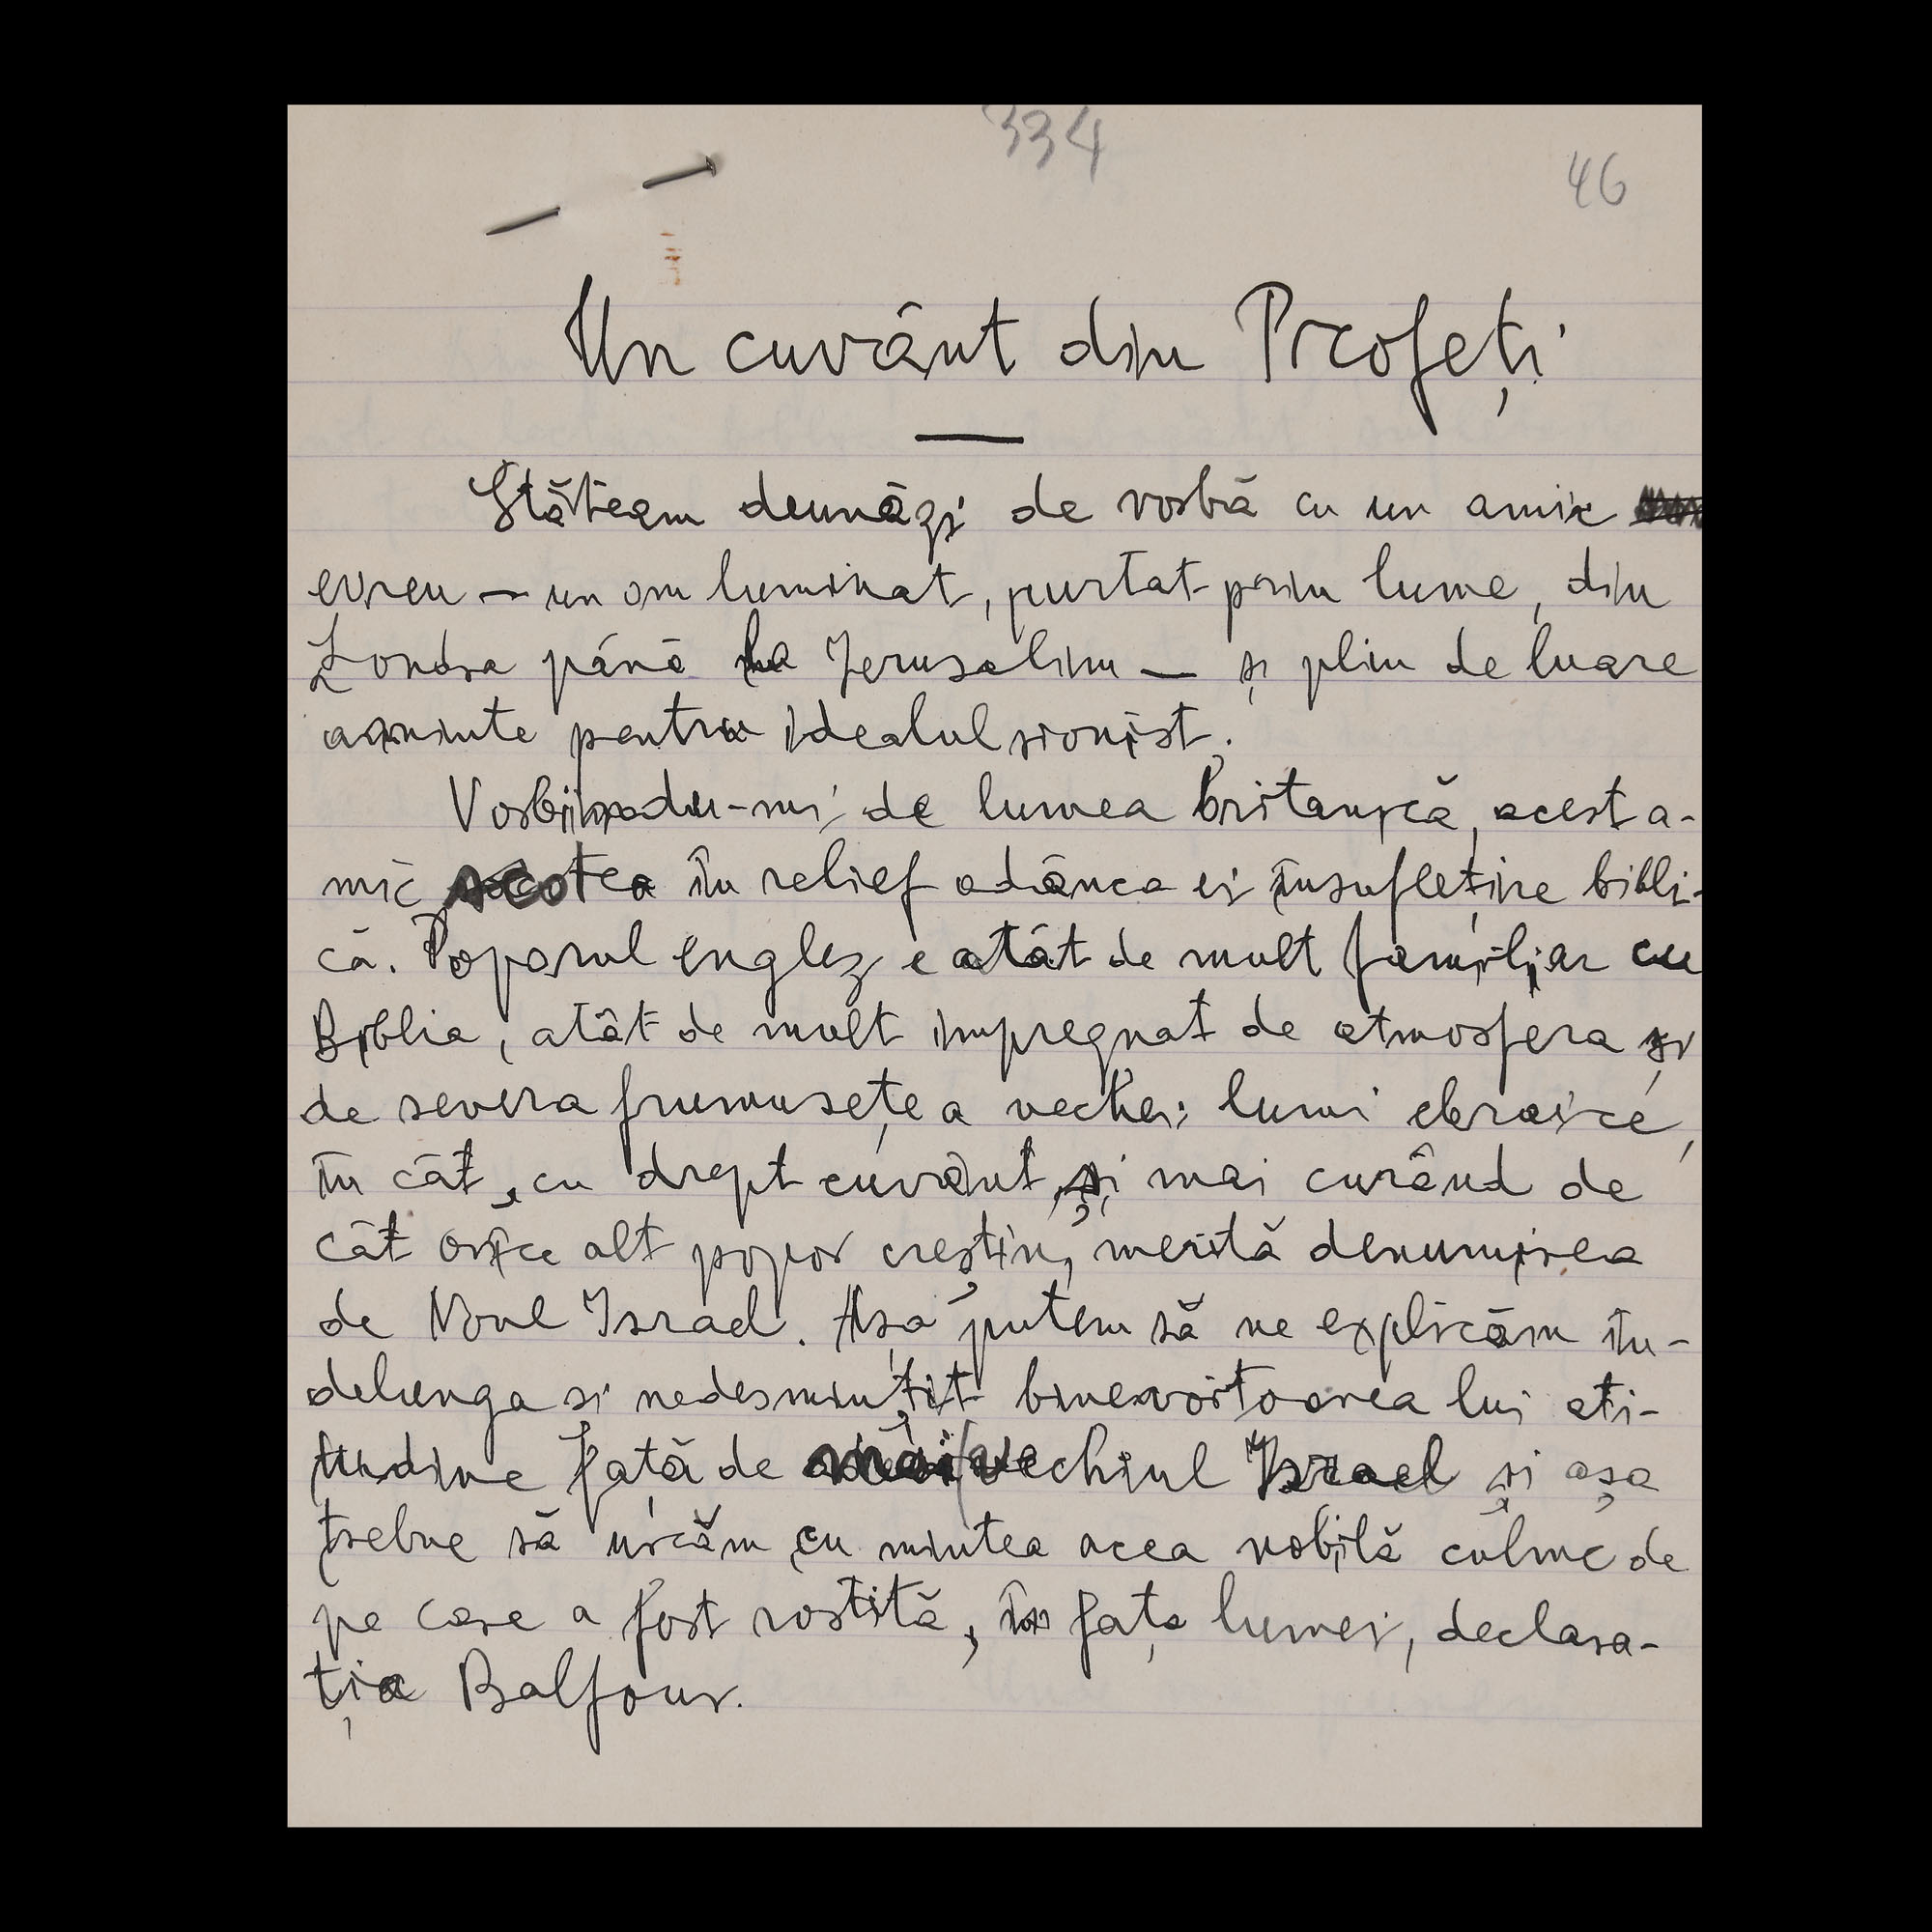 334
46
Un cuvânt din Profeți
Stăteam deunăzi de vorbă cu un amic
evreu — un om luminat, purtat prin lume, din
Londra până la Jerusalim — și plin de luare
aminte pentru idealul sionist.
Vorbindu-mi de lumea britanică, acest a-
mic scotea în relief adânca ei însuflețire bibli-
că. Poporul englez e atât de mult familiar cu
Biblia, atât de mult impregnat de atmosfera și
de severa frumusețea vechei lumi ebraice,
în cât, cu drept cuvânt, și mai curând de
cât orice alt popor creștin, merită denumirea
de Noul Israel. Așa putem să ne explicăm în-
delunga și nedesmințit binevoitoarea lui ati-
tudine față de vechiul Israel și așa
trebue să urcăm cu mintea acea nobilă culme de
pe care a fost rostită, în fața lumei, declara-
ția Balfour.